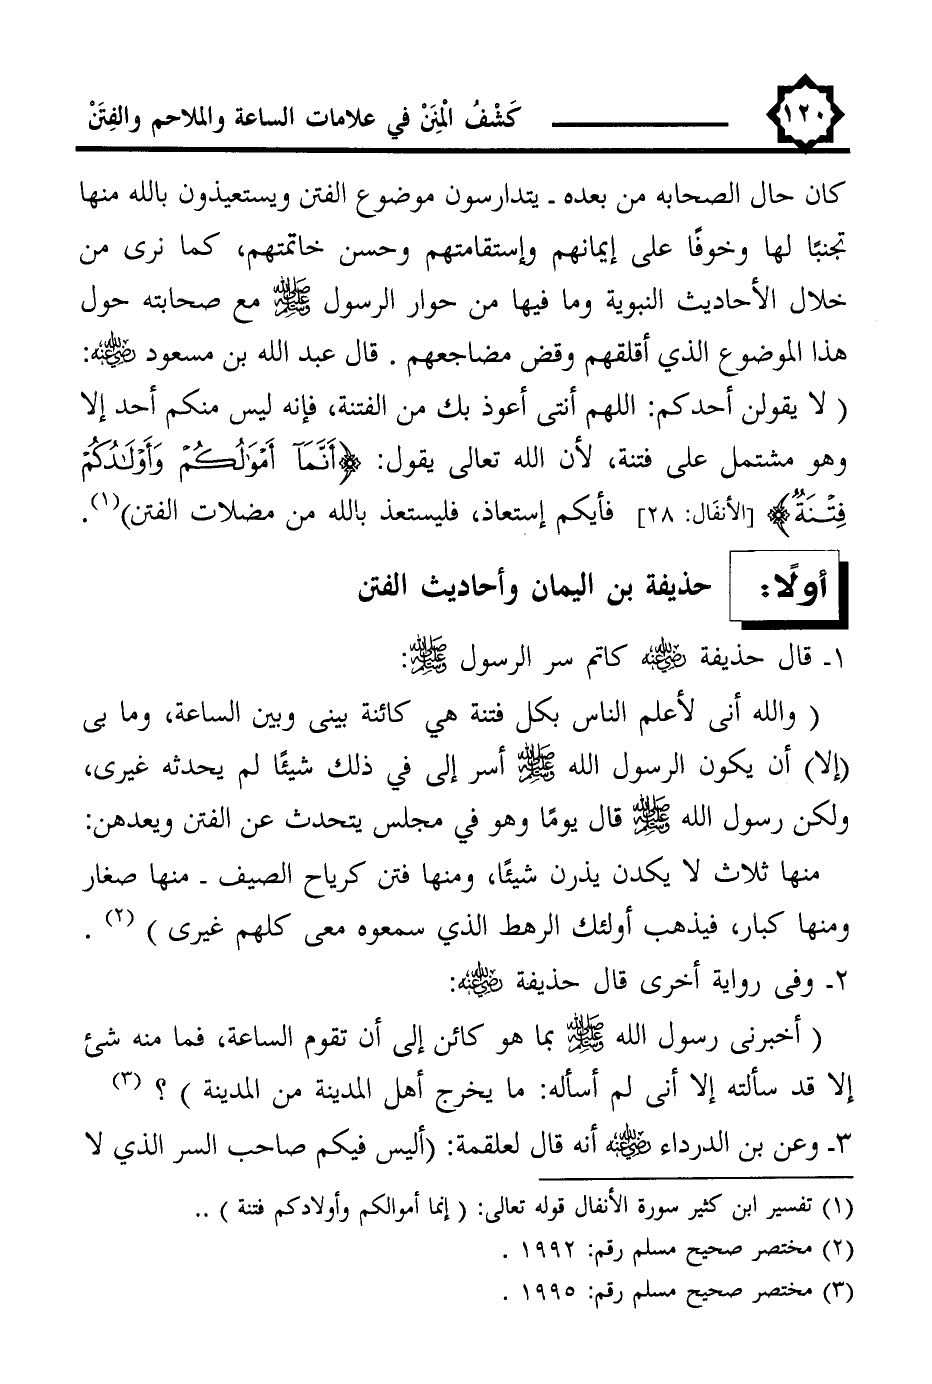 ١٢٠
كَشْفُ الْمِنَنْ في علامات الساعة والملاحم والفِتَنْ
كان حال الصحابه من بعده ـ يتدارسون موضوع الفتن ويستعيذون بالله منها
تجنبًا لها وخوفًا على إيمانهم وإستقامتهم وحسن خاتمتهم، كما نرى من
خلال الأحاديث النبوية وما فيها من حوار الرسول ﷺ مع صحابته حول
هذا الموضوع الذي أقلقهم وقض مضاجعهم . قال عبد الله بن مسعود رضي الله عنه:
( لا يقولن أحدكم: اللهم أنتى أعوذ بك من الفتنة، فإنه ليس منكم أحد إلا
وهو مشتمل على فتنة، لأن الله تعالى يقول: ﴿أَنَّمَآ أَمْوَٰلُكُمْ وَأَوْلَٰدُكُمْ
فِتْنَةٌ﴾ [الأنفَال: ٢٨] فأيكم إستعاذ، فليستعذ بالله من مضلات الفتن)(١).
أولًا: حذيفة بن اليمان وأحاديث الفتن
١ـ قال حذيفة رضي الله عنه كاتم سر الرسول ﷺ:
( والله أنى لأعلم الناس بكل فتنة هي كائنة بينى وبين الساعة، وما بى
(إلا) أن يكون الرسول الله ﷺ أسر إلى في ذلك شيئًا لم يحدثه غيرى،
ولكن رسول الله ﷺ قال يومًا وهو في مجلس يتحدث عن الفتن ويعدهن:
منها ثلاث لا يكدن يذرن شيئًا، ومنها فتن كرياح الصيف ـ منها صغار
ومنها كبار، فيذهب أولئك الرهط الذي سمعوه معى كلهم غيرى ) (٢) .
٢ـ وفى رواية أخرى قال حذيفة رضي الله عنه:
( أخبرنى رسول الله ﷺ بما هو كائن إلى أن تقوم الساعة، فما منه شئ
إلا قد سألته إلا أنى لم أسأله: ما يخرج أهل المدينة من المدينة ) ؟ (٣)
٣ـ وعن بن الدرداء رضي الله عنه أنه قال لعلقمة: (أليس فيكم صاحب السر الذي لا
(١) تفسير ابن كثير سورة الأنفال قوله تعالى: ( إنما أموالكم وأولادكم فتنة ) ..
(٢) مختصر صحيح مسلم رقم: ١٩٩٢ .
(٣) مختصر صحيح مسلم رقم: ١٩٩٥ .